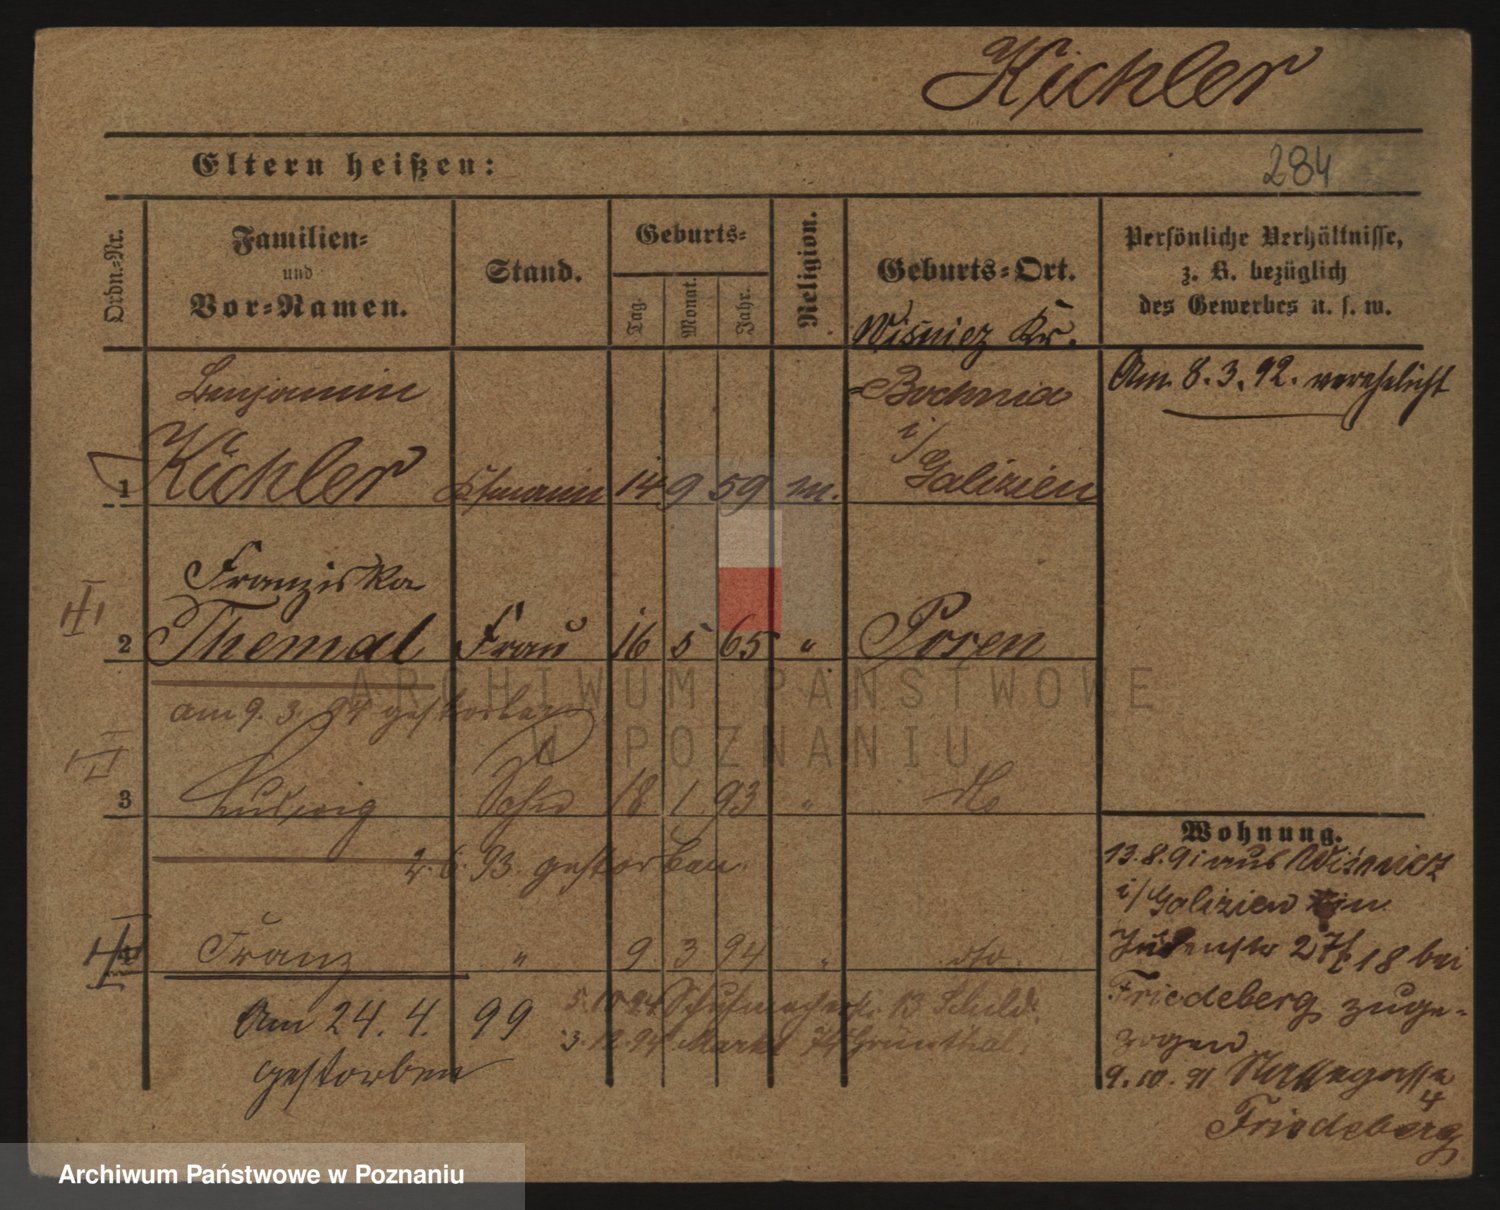 Kichler
Eltern heißen:
284
Ordn.-Nr.
Familien-
und
Vor-Namen.
Stand.
Geburts-
Tag.
Monat.
Jahr.
Religion.
Geburts-Ort.
Persönliche Verhältnisse,
z. B. bezüglich
des Gewerbes u. s. w.
Wiśnicz Kr.
Benjamin
Bochnia
Am 8.3.92. verehelicht
i/
1 Kichler Kfmann 14 9 59 m. Galizien
Franziska
2 Themal Frau 16 5 65 " Posen
am 9. 3. 94 gestorben
3 Ludwig Sohn 18 1 93 " do
2. 6. 93. gestorben
4 Franz " 9 3 94 " do.
Am 24. 4. 99
gestorben
5.10.94 Schuhmacherstr. 13 Schild.
3.12.94 Markt 74 Grünthal.
Wohnung.
13.8.91 aus Wiśnicz
i/Galizien in
Judenstr 27/ 18 bei
Friedeberg zuge-
zogen
9.10.91 gasse
4
Friedeberg
ARCHIWUM PAŃSTWOWE
W POZNANIU
Archiwum Państwowe w Poznaniu